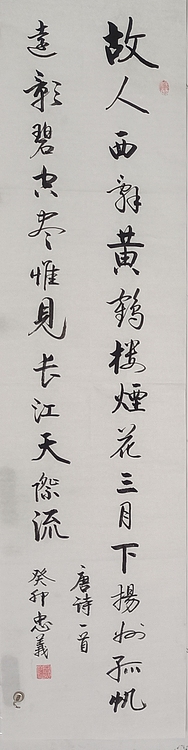 故人西辞黄鹤楼煙花三月下揚州孤帆
遠影碧空尽惟見长江天際流
唐诗一首
癸卯忠義